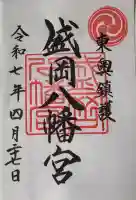 東奥鎮護
盛岡八幡宮
令和七年四月二七日